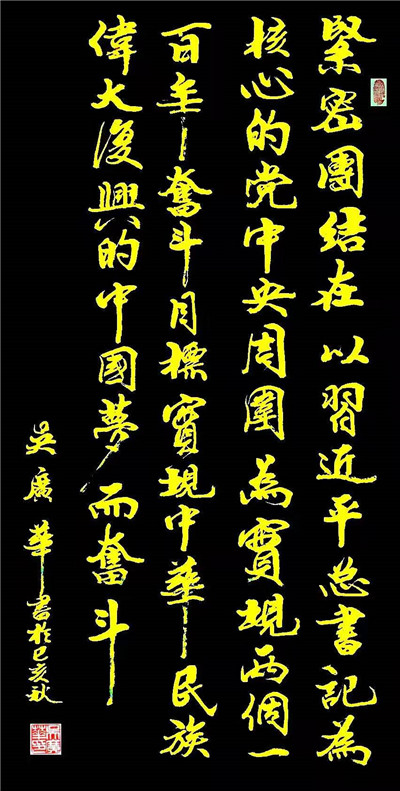 緊密團結在以習近平总書記為
核心的党中央周圍為實現两個一
百年奮斗目標實現中華民族
偉大復興的中國夢而奮斗
吴廣華書於己亥秋